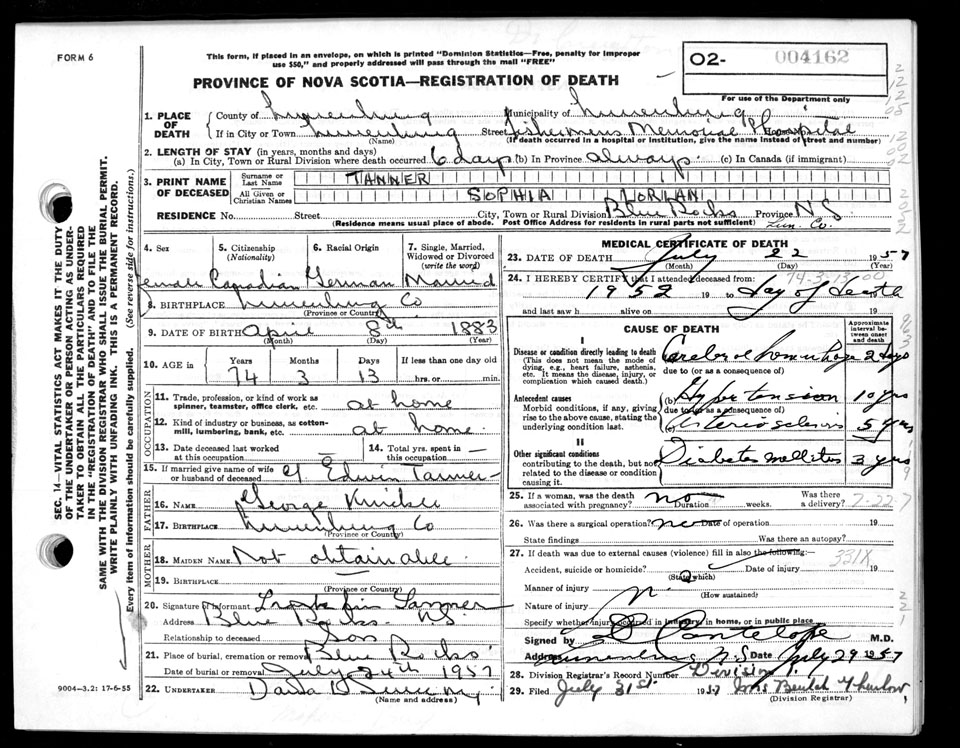 FORM 6
This form, if placed in an envelope, on which is printed "Dominion Statistics—Free, penalty for improper
use $50," and properly addressed will pass through the mail "FREE"
PROVINCE OF NOVA SCOTIA—REGISTRATION OF DEATH
O2- 004162
For use of the Department only
1. PLACE OF DEATH
County of Lunenburg Municipality of Lunenburg
If in City or Town Lunenburg Street Fishermens Memorial Hospital
(Name) (If death occurred in a hospital or institution, give the name instead of street and number)
2. LENGTH OF STAY (in years, months and days)
(a) In City, Town or Rural Division where death occurred 6 days (b) In Province always (c) In Canada (if immigrant)
3. PRINT NAME OF DECEASED
Surname or Last Name TANNER
All Given or Christian Names SOPHIA
RESIDENCE No. Street City, Town or Rural Division Blue Rocks Province NS
(Residence means usual place of abode. Post Office Address for residents in rural parts not sufficient) Lun. Co.
SEC. 14—VITAL STATISTICS ACT MAKES IT THE DUTY
OF THE UNDERTAKER OR PERSON ACTING AS UNDER-
TAKER TO OBTAIN ALL THE PARTICULARS REQUIRED
IN THE "REGISTRATION OF DEATH" AND TO FILE THE
SAME WITH THE DIVISION REGISTRAR WHO SHALL ISSUE THE BURIAL PERMIT.
WRITE PLAINLY WITH UNFADING INK. THIS IS A PERMANENT RECORD.
Every item of Information should be carefully supplied. (See reverse side for instructions.)
4. Sex 5. Citizenship (Nationality) 6. Racial Origin 7. Single, Married, Widowed or Divorced (write the word)
Female Canadian German Married
8. BIRTHPLACE Lunenburg Co
(Province or Country)
9. DATE OF BIRTH April 8th 1883
(Month) (Day) (Year)
10. AGE in Years Months Days If less than one day old
74 3 13 hrs. or min.
OCCUPATION
11. Trade, profession, or kind of work as
spinner, teamster, office clerk, etc. at home
12. Kind of industry or business, as cotton-
mill, lumbering, bank, etc. at home
13. Date deceased last worked at this occupation 14. Total yrs. spent in this occupation
15. If married give name of wife
or husband of deceased of Edwin Tanner
FATHER
16. NAME George
17. BIRTHPLACE Lunenburg Co
(Province or Country)
MOTHER
18. MAIDEN NAME Not obtainable
19. BIRTHPLACE
(Province or Country)
20. Signature of Informant Tanner
Address Blue Rocks NS
Relationship to deceased Son
21. Place of burial, cremation or removal Blue Rocks
Date of burial or removal July 24th 1957
9004—3.2: 17-6-55
22. UNDERTAKER
(Name and address)
MEDICAL CERTIFICATE OF DEATH
23. DATE OF DEATH July 22 1957
(Month) (Day) (Year)
24. I HEREBY CERTIFY that I attended deceased from:
74-3-13-00
1952 19 to day of death
and last saw h alive on 19
CAUSE OF DEATH
Approximate interval between onset and death
I
Disease or condition directly leading to death
(This does not mean the mode of
dying, e.g., heart failure, asthenia,
etc. It means the disease, injury, or
complication which caused death.)
Cerebral hemorrhage 2 days
due to (or as a consequence of)
Antecedent causes
Morbid conditions, if any, giving
rise to the above cause, stating the
underlying condition last.
(b) Hypertension 10 yrs
due to (or as a consequence of)
Arteriosclerosis 5 yrs
II
Other significant conditions
contributing to the death, but not
related to the disease or condition
causing it.
Diabetes mellitus 3 yrs
25. If a woman, was the death associated with pregnancy? no Duration weeks. Was there a delivery? 7-22-7
26. Was there a surgical operation? no Date of operation 19
State findings Was there an autopsy?
27. If death was due to external causes (violence) fill in also the following:—
331X
Accident, suicide or homicide? Date of injury 19
(State which)
Manner of injury
(How sustained)
Nature of injury
Specify whether injury occurred in industry, in home, or in public place
Signed by M.D.
Address Lunenburg N.S Date July 29 1957
28. Division Registrar's Record Number Division
29. Filed July 31st 1957 Mrs Beulah
(Division Registrar)